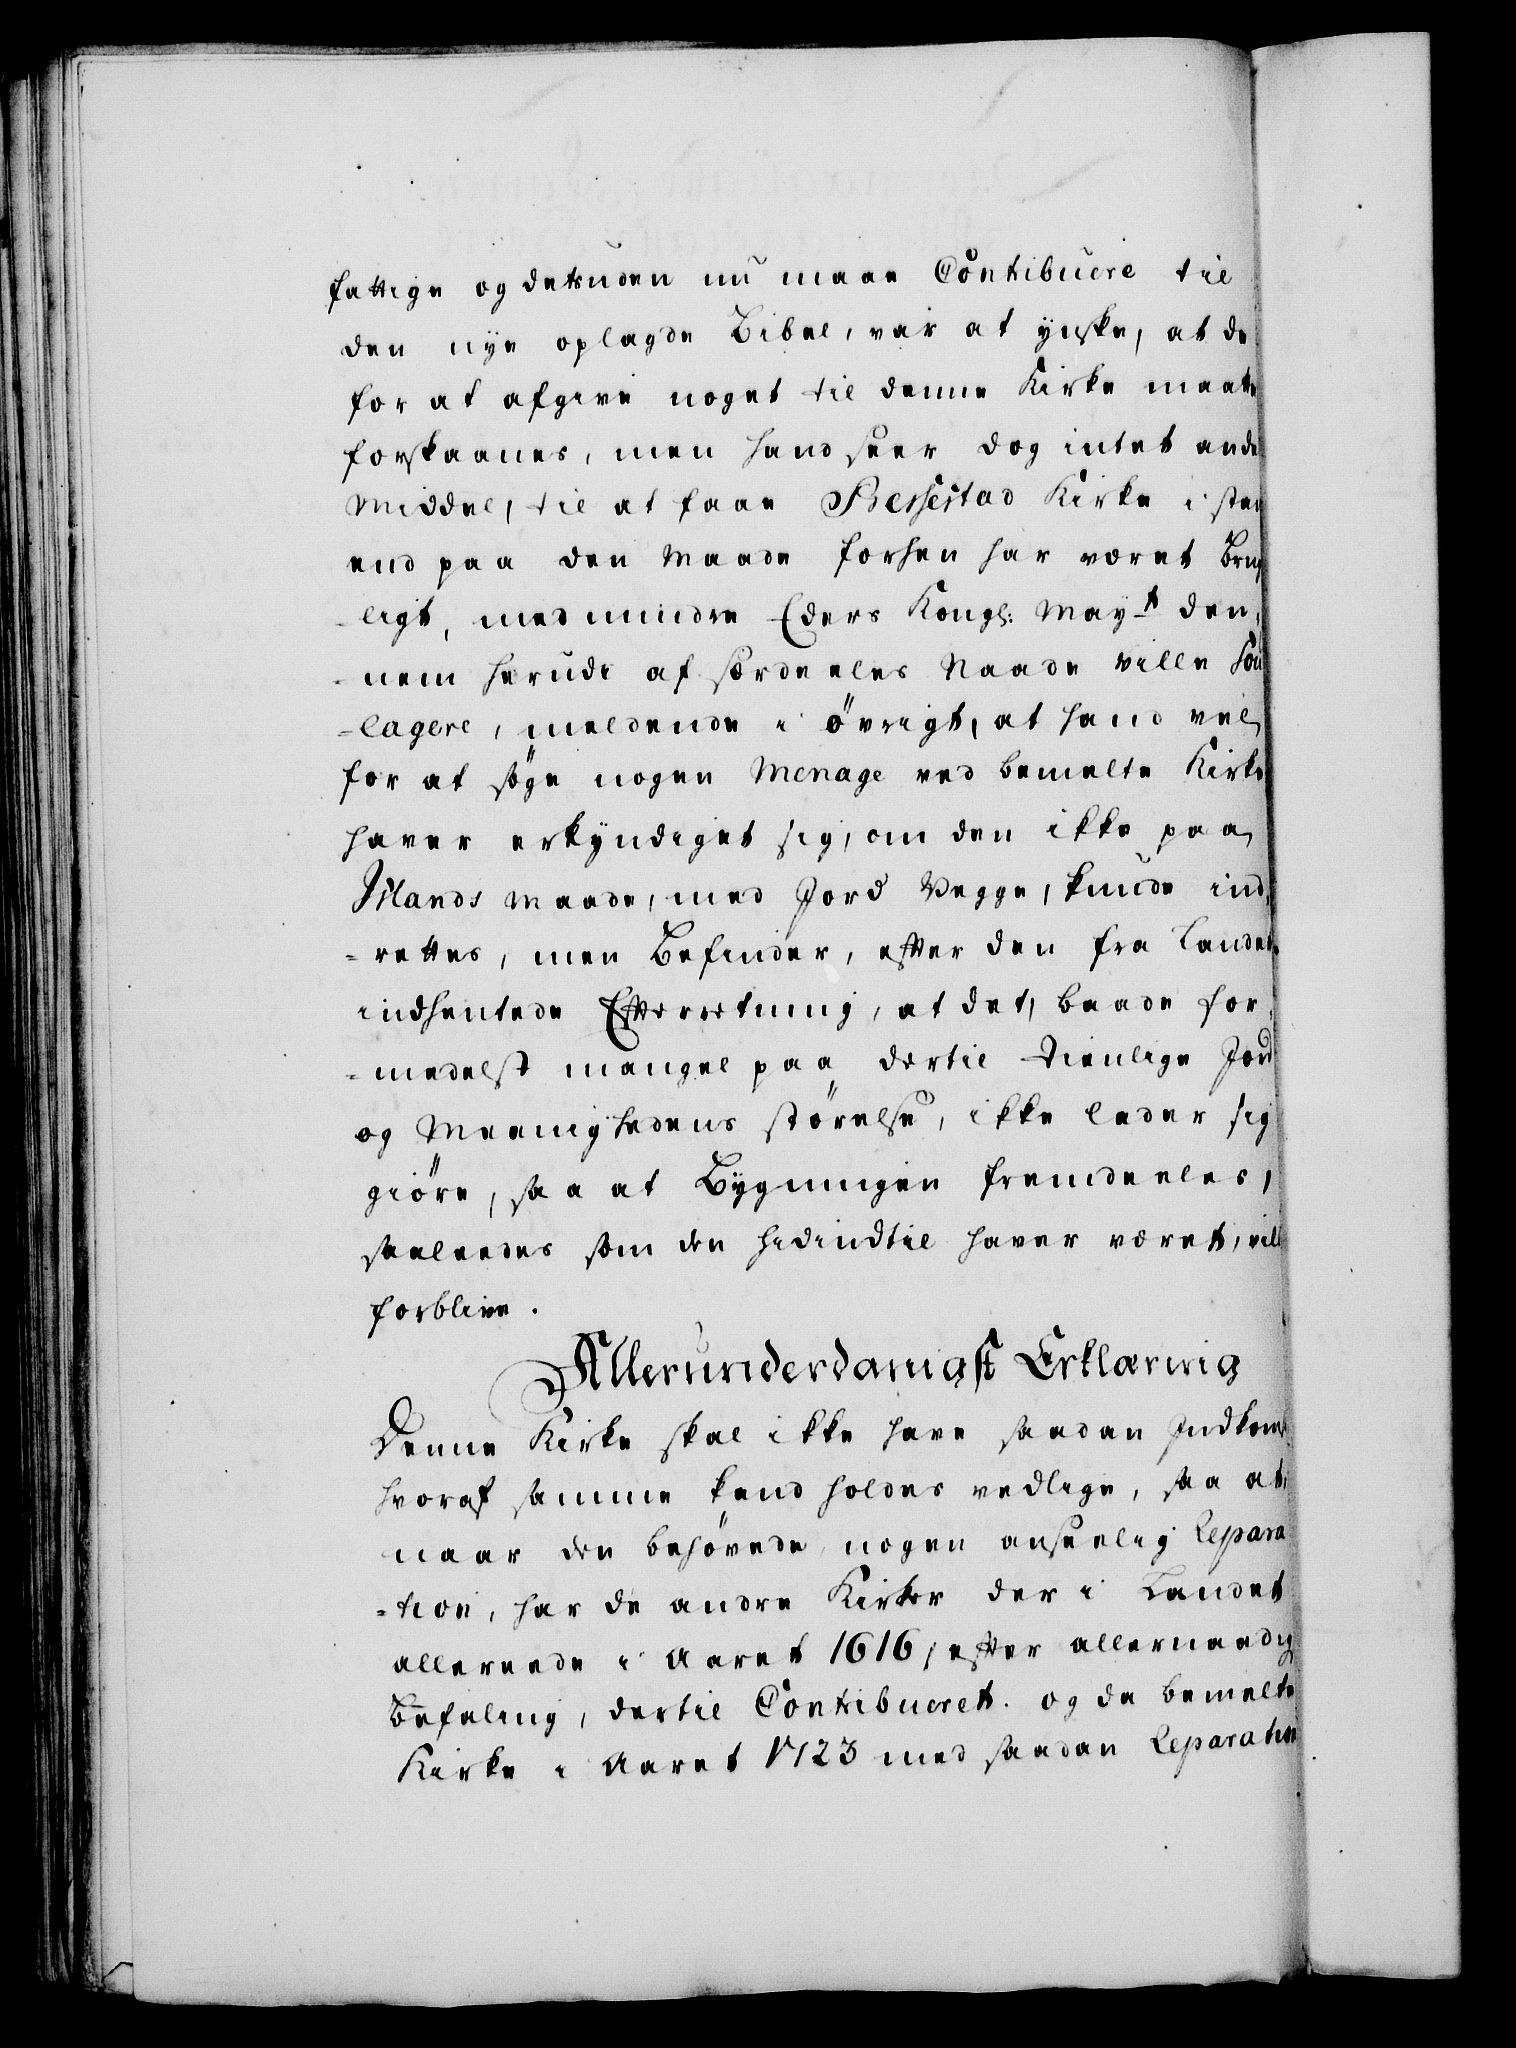 fattige og desuden nu maae Contibuere til
den nye oplagde Bibel, var at ynske, at de
for at afgive noget til denne Kirke maatte
forskaanes, men hand seer dog intet ande
Middel, til at faae Bessestad Kirke i stan
end paa den Maade forhen har været Brug
-ligt, med mindre Eders Kongl: Mayt den,
-nem herudi af særdeeles Naade ville Sou
-lagere, meldende i øvrigt, at hand vel
for at søge nogen Menage ved bemelte Kirke
haver erkyndiget sig, om den ikke paa
Islands Maade, med Jord Vegge, kunde ind,
-rettes, men Befinder, effter den fra Landet
indhentede Effterretning, at det, baade for,
-medelst mangel paa dertil tienlige Jord
og Meenighedens størelse, ikke lader sig
giøre, saa at Bygningen fremdeeles,
saaleedes som den hidindtil haver været, vill
forblive.
Allerunderdanigst Erklæring
Denne Kirke skal ikke have saadan Indkomst
hvoraf samme kand holdes vedlige, saa at
naar den behøvede nogen anseelig Repara
-tion, har de andre Kirker der i Landet
allereede i Aaret 1616, effter allernaadig
Befaling, dertil Contibueret. og da bemelte
Kirke i Aaret 1723 med saadan Reparation